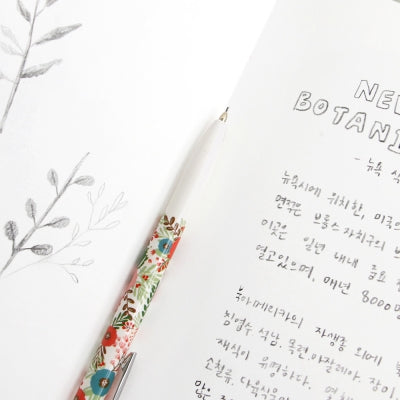 NEW
BOTANI
- 뉴욕 식
뉴욕시에 위치한, 미국의
연구은 브롱스 자치구의 브
이곳은 일년 내내 주요 정
열고있으며, 매년 8000명
북아메리카의 자생종 외에
침엽수, 석남, 목련, 아잘레아, 장미
재식이 유명하다. 열
소철류, 다육식물
많은